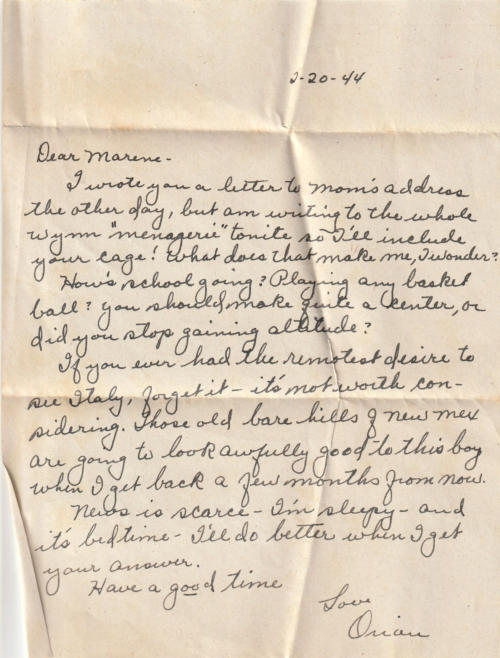 2-20-44
Dear Marene-
I wrote you a letter to Mom's address
the other day, but am writing to the whole
Wynn "menagerie" tonite so I'll include
your cage! What does that make me, I wonder?
How's school going? Playing any basket
ball? You should make quite a center, or
did you stop gaining altitude?
If you ever had the remotest desire to
see Italy, forget it - it's not worth con-
sidering. Those old bare hills of New Mex
are going to look awfully good to this boy
when I get back a few months from now.
News is scarce - I'm sleepy - and
it's bedtime - I'll do better when I get
your answer.
Have a good time
Love
Orian